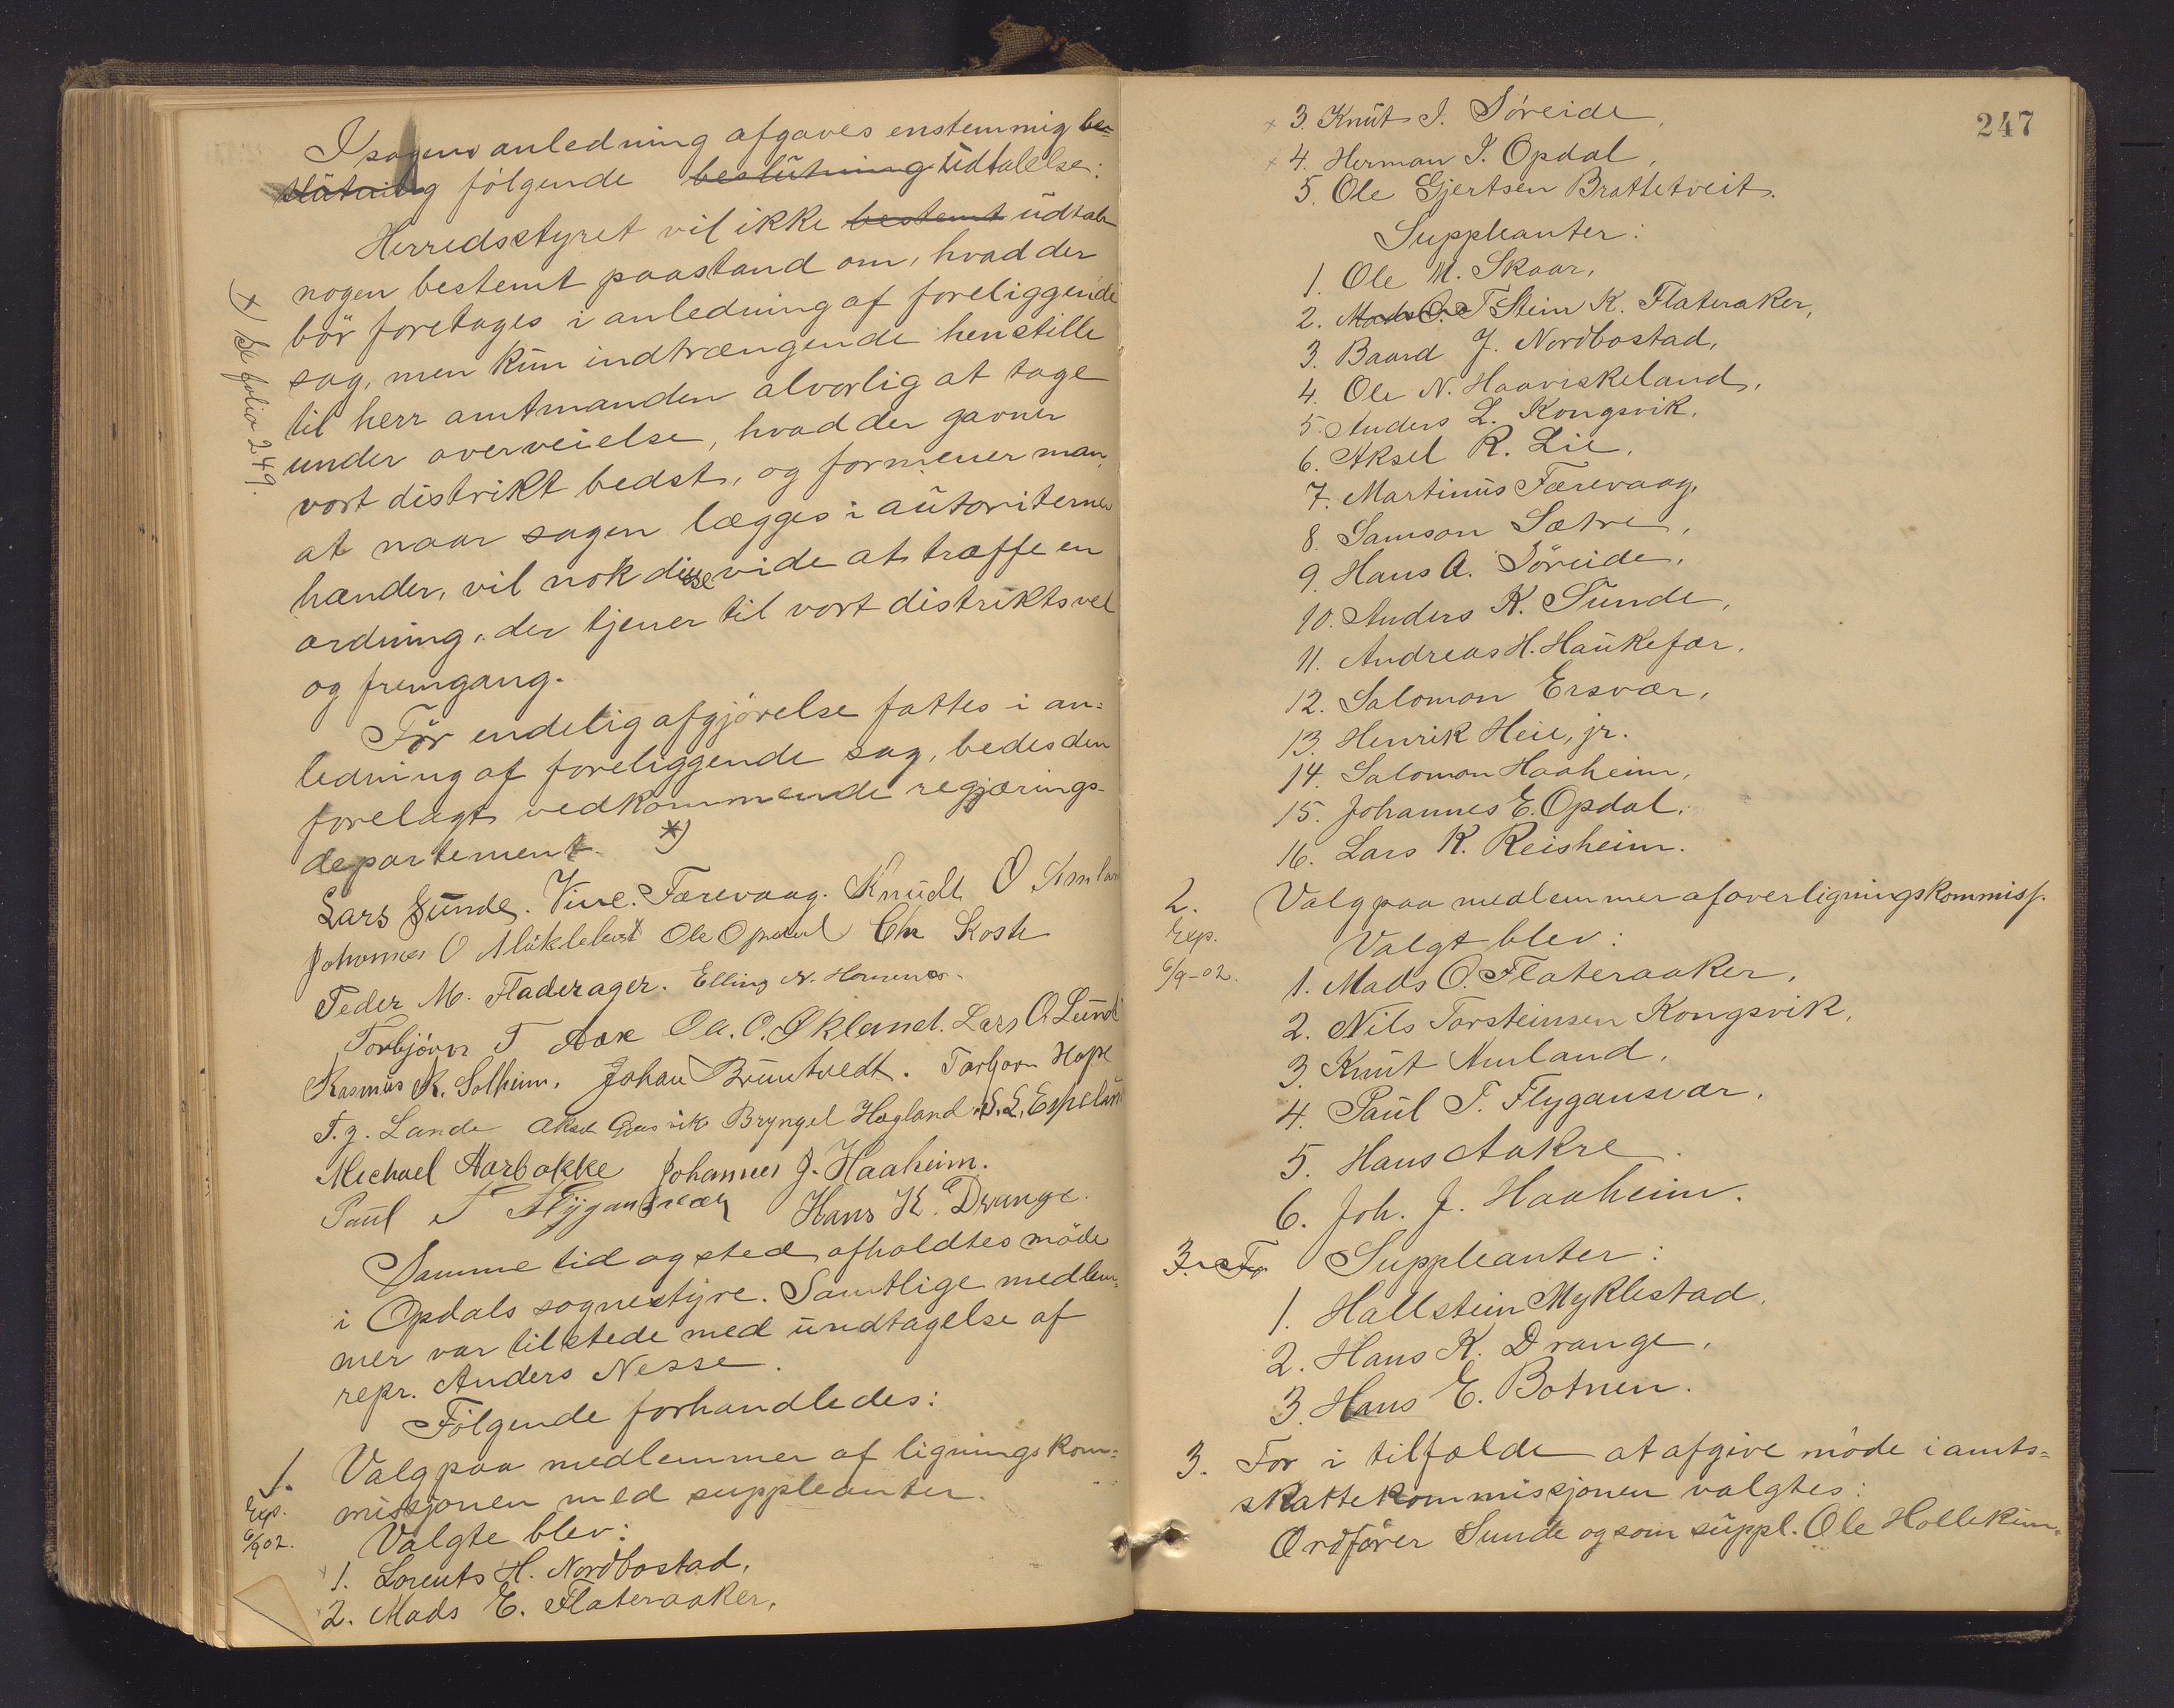 I sagens anledning afgaves enstemmig be-
slutning følgende beslutning udtalelse:
Herredsstyret vil ikke bestemt udtale
nogen bestemt paastand om, hvad der
bør foretages i anledning af foreliggende
sag, men kun indtrængende henstille
til herr amtmanden alvorlig at tage
under overveielse, hvad der gavner
vort distrikt bedst, og formener man,
at naar sagen lægges i autoriternes
hænder, vil nok disse vide at træffe en
ordning, der tjener til vort distrikts vel
og fremgang.
Før endelig afgjørelse fattes i an=
ledning af foreliggende sag, bedes den
forelagt vedkommende regjærings-
departement. *)
x) Se folio 249.
Lars Sunde. Vinc. Færevaag. Knudt O Amland
Johannes O Mükletvedt Ole Opdal Chr Koste
Peder M. Fladerager. Elling N. Hornenes.
Torbjørn T Aase Ol. O. Økland. Lars O. Lund
Rasmus K. Solheim. Johan Bruntvedt. Torbjørn Hope
T. J. Lande Aksel Gaasvik Bryngel Høgland S. L. Espeland
Michael Aarbakke Johannes J. Haaheim.
Paul T Flygansvær Hans K. Drange.
Samme tid og sted afholdtes møde
i Opdals sognestyre. Samtlige medlem=
mer var tilstede med undtagelse af
repr. Anders Nesse.
Følgende forhandledes:
1. Valg paa medlemmer af ligningskom=
Exp. missjonen med suppleanter.
6/9 02. Valgte blev:
x 1. Lorents H. Nordbostad,
x 2. Mads E. Flateraaker,
247
x 3. Knut I. Søreide,
x 4. Herman I. Opdal,
5. Ole Gjertsen Brattetveit.
Suppleanter:
1. Ole M. Skaar,
2. Mads O. T Stein K. Flateraker,
3. Baard J. Nordbostad,
4. Ole N. Haaviskeland,
5. Anders L. Kongsvik,
6. Aksel R. Lie,
7. Martinus Færevaag,
8. Samson Sætre,
9. Hans A. Søreide,
10. Anders K. Sunde,
11. Andreas H. Haukefær,
12. Salomon Ersvær,
13. Henrik Heie, jr.
14. Salomon Haaheim,
15. Johannes E. Opdal,
16. Lars K. Reisheim.
2. Valg paa medlemmer af overligningskommiss.
Exp. Valgt blev:
6/9-02. 1. Mads O. Flateraaker,
2. Nils Torsteinsen Kongsvik,
3. Knut Amland,
4. Paul T. Flygansvær,
5. Hans Aakre.
6. Joh. J. Haaheim.
3. Fo Suppleanter:
1. Hallstein Myklestad,
2. Hans K. Drange,
3. Hans E. Botnen.
3. For i tilfælde at afgive møde i amts=
skattekommissjonen valgtes:
Ordfører Sunde og som suppl. Ole Hollekim.